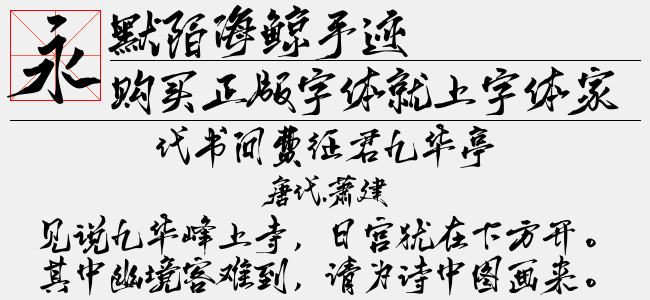 永
默陌海鲸手迹
购买正版字体就上字体家
代书问费征君九华亭
唐代.萧建
见说九华峰上寺，日宫犹在下方开。
其中幽境客难到，请为诗中图画来。